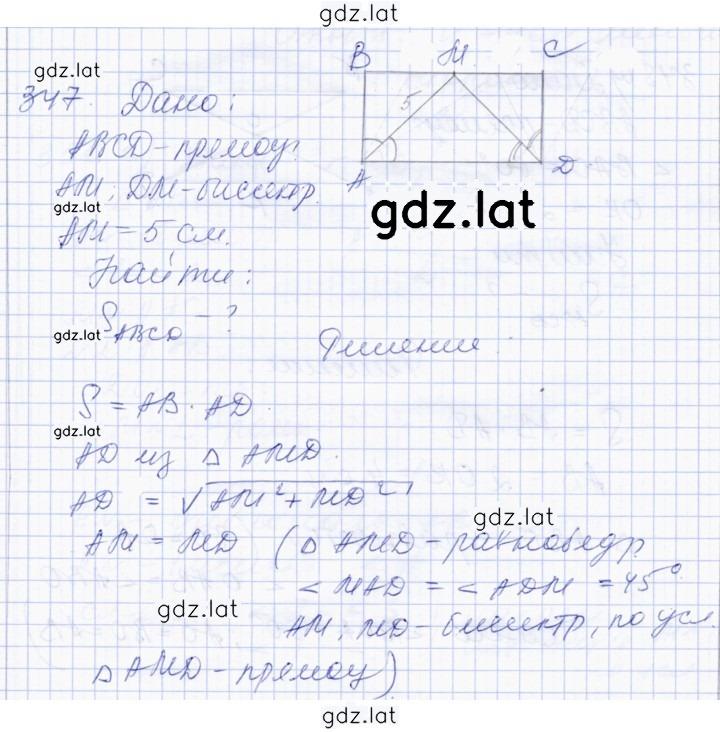 gdz.lat
B M C
gdz.lat
347. Дано:
5
ABCD-прямоуг.
A D
AM; DM-биссектр.
gdz.lat
gdz.lat
AM = 5 см.
Найти:
S ABCD - ?
gdz.lat
Решение:
S = AB · AD.
gdz.lat
AD из △ AMD.
AD = √AM² + MD²
gdz.lat
AM = MD (△ AMD-равнобедр.
< MAD = < ADM = 45°
gdz.lat
AM; MD-биссектр, по усл.
△ AMD-прямоуг)
gdz.lat